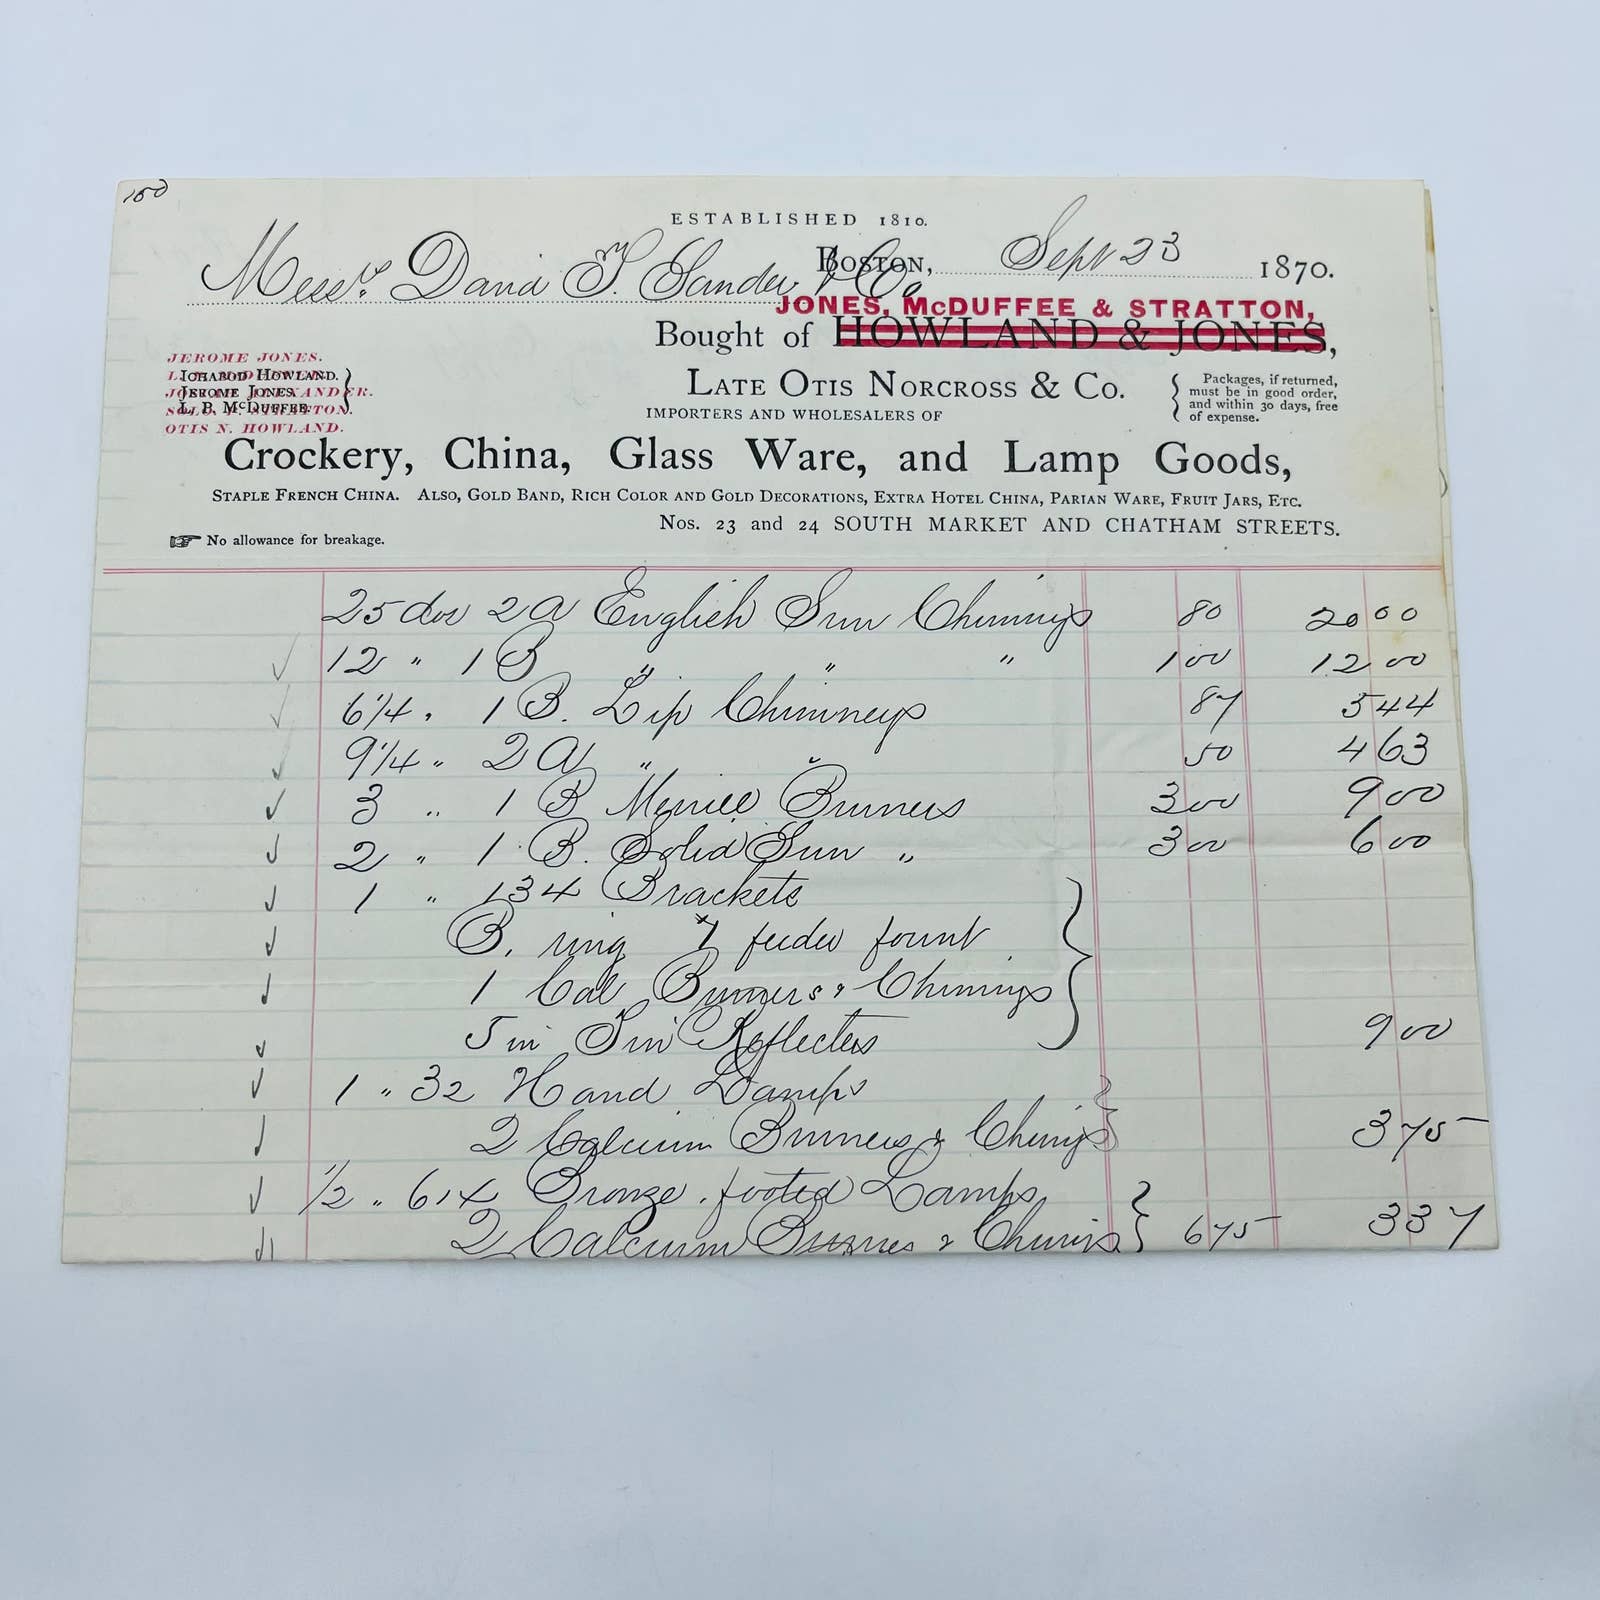 150
ESTABLISHED 1810.
Boston, Sept 23 1870.
Messrs David T. Sander & Co
JONES, McDUFFEE & STRATTON,
Bought of HOWLAND & JONES,
JEROME JONES.
Ichabod Howland.
Jerome Jones.
L. P. McDuffee.
OTIS N. HOWLAND.
Late Otis Norcross & Co.
Packages, if returned,
must be in good order,
and within 30 days, free
of expense.
IMPORTERS AND WHOLESALERS OF
Crockery, China, Glass Ware, and Lamp Goods,
Staple French China. Also, Gold Band, Rich Color and Gold Decorations, Extra Hotel China, Parian Ware, Fruit Jars, Etc.
Nos. 23 and 24 SOUTH MARKET AND CHATHAM STREETS.
No allowance for breakage.
25 doz 2 A English Sun Chimnys 80 20 00
12 " 1 B " " " 1 00 12 00
6 1/4 " 1 B. Lip Chimneys 87 5 44
9 1/4 " 2 A " " 50 4 63
3 " 1 B Merrill Burners 3 00 9 00
2 " 1 B. Solid Sun " 3 00 6 00
1 " 134 Brackets
B. ring & feeder fount
1 Cal Burners & Chimnys
5 in Tin Reflecters 9 00
1 " 32 Hand Lamps
2 Calcium Burners & Chimys 3 75
1/2 " 614 Bronze footed Lamps
2 Calcium Burners & Chimys 6 75 3 37